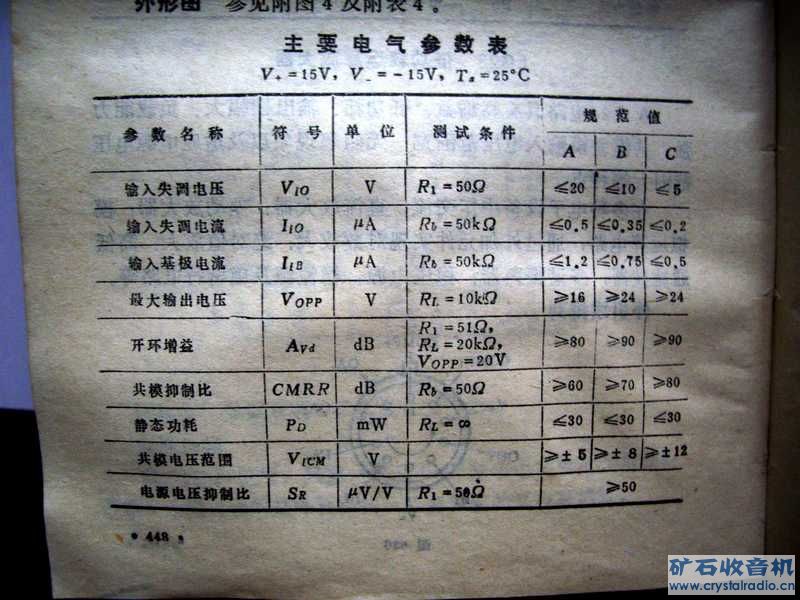 外形图 参见附图4及附表4。
主要电气参数表
V₊=15V, V₋=-15V, Tₐ=25°C
参数名称 符号 单位 测试条件 规范值
A B C
输入失调电压 V_IO V R₁=50Ω ≤20 ≤10 ≤5
输入失调电流 I_IO μA R_b=50kΩ ≤0.5 ≤0.35 ≤0.2
输入基极电流 I_IB μA R_b=50kΩ ≤1.2 ≤0.75 ≤0.5
最大输出电压 V_OPP V R_L=10kΩ ≥16 ≥24 ≥24
开环增益 A_Vd dB R₁=51Ω, R_L=20kΩ, V_OPP=20V ≥80 ≥90 ≥90
共模抑制比 CMRR dB R_b=50Ω ≥60 ≥70 ≥80
静态功耗 P_D mW R_L=∞ ≤30 ≤30 ≤30
共模电压范围 V_ICM V ≥±5 ≥±8 ≥±12
电源电压抑制比 S_R μV/V R₁=50Ω ≥50
• 448 •
矿石收音机
www.crystalradio.cn